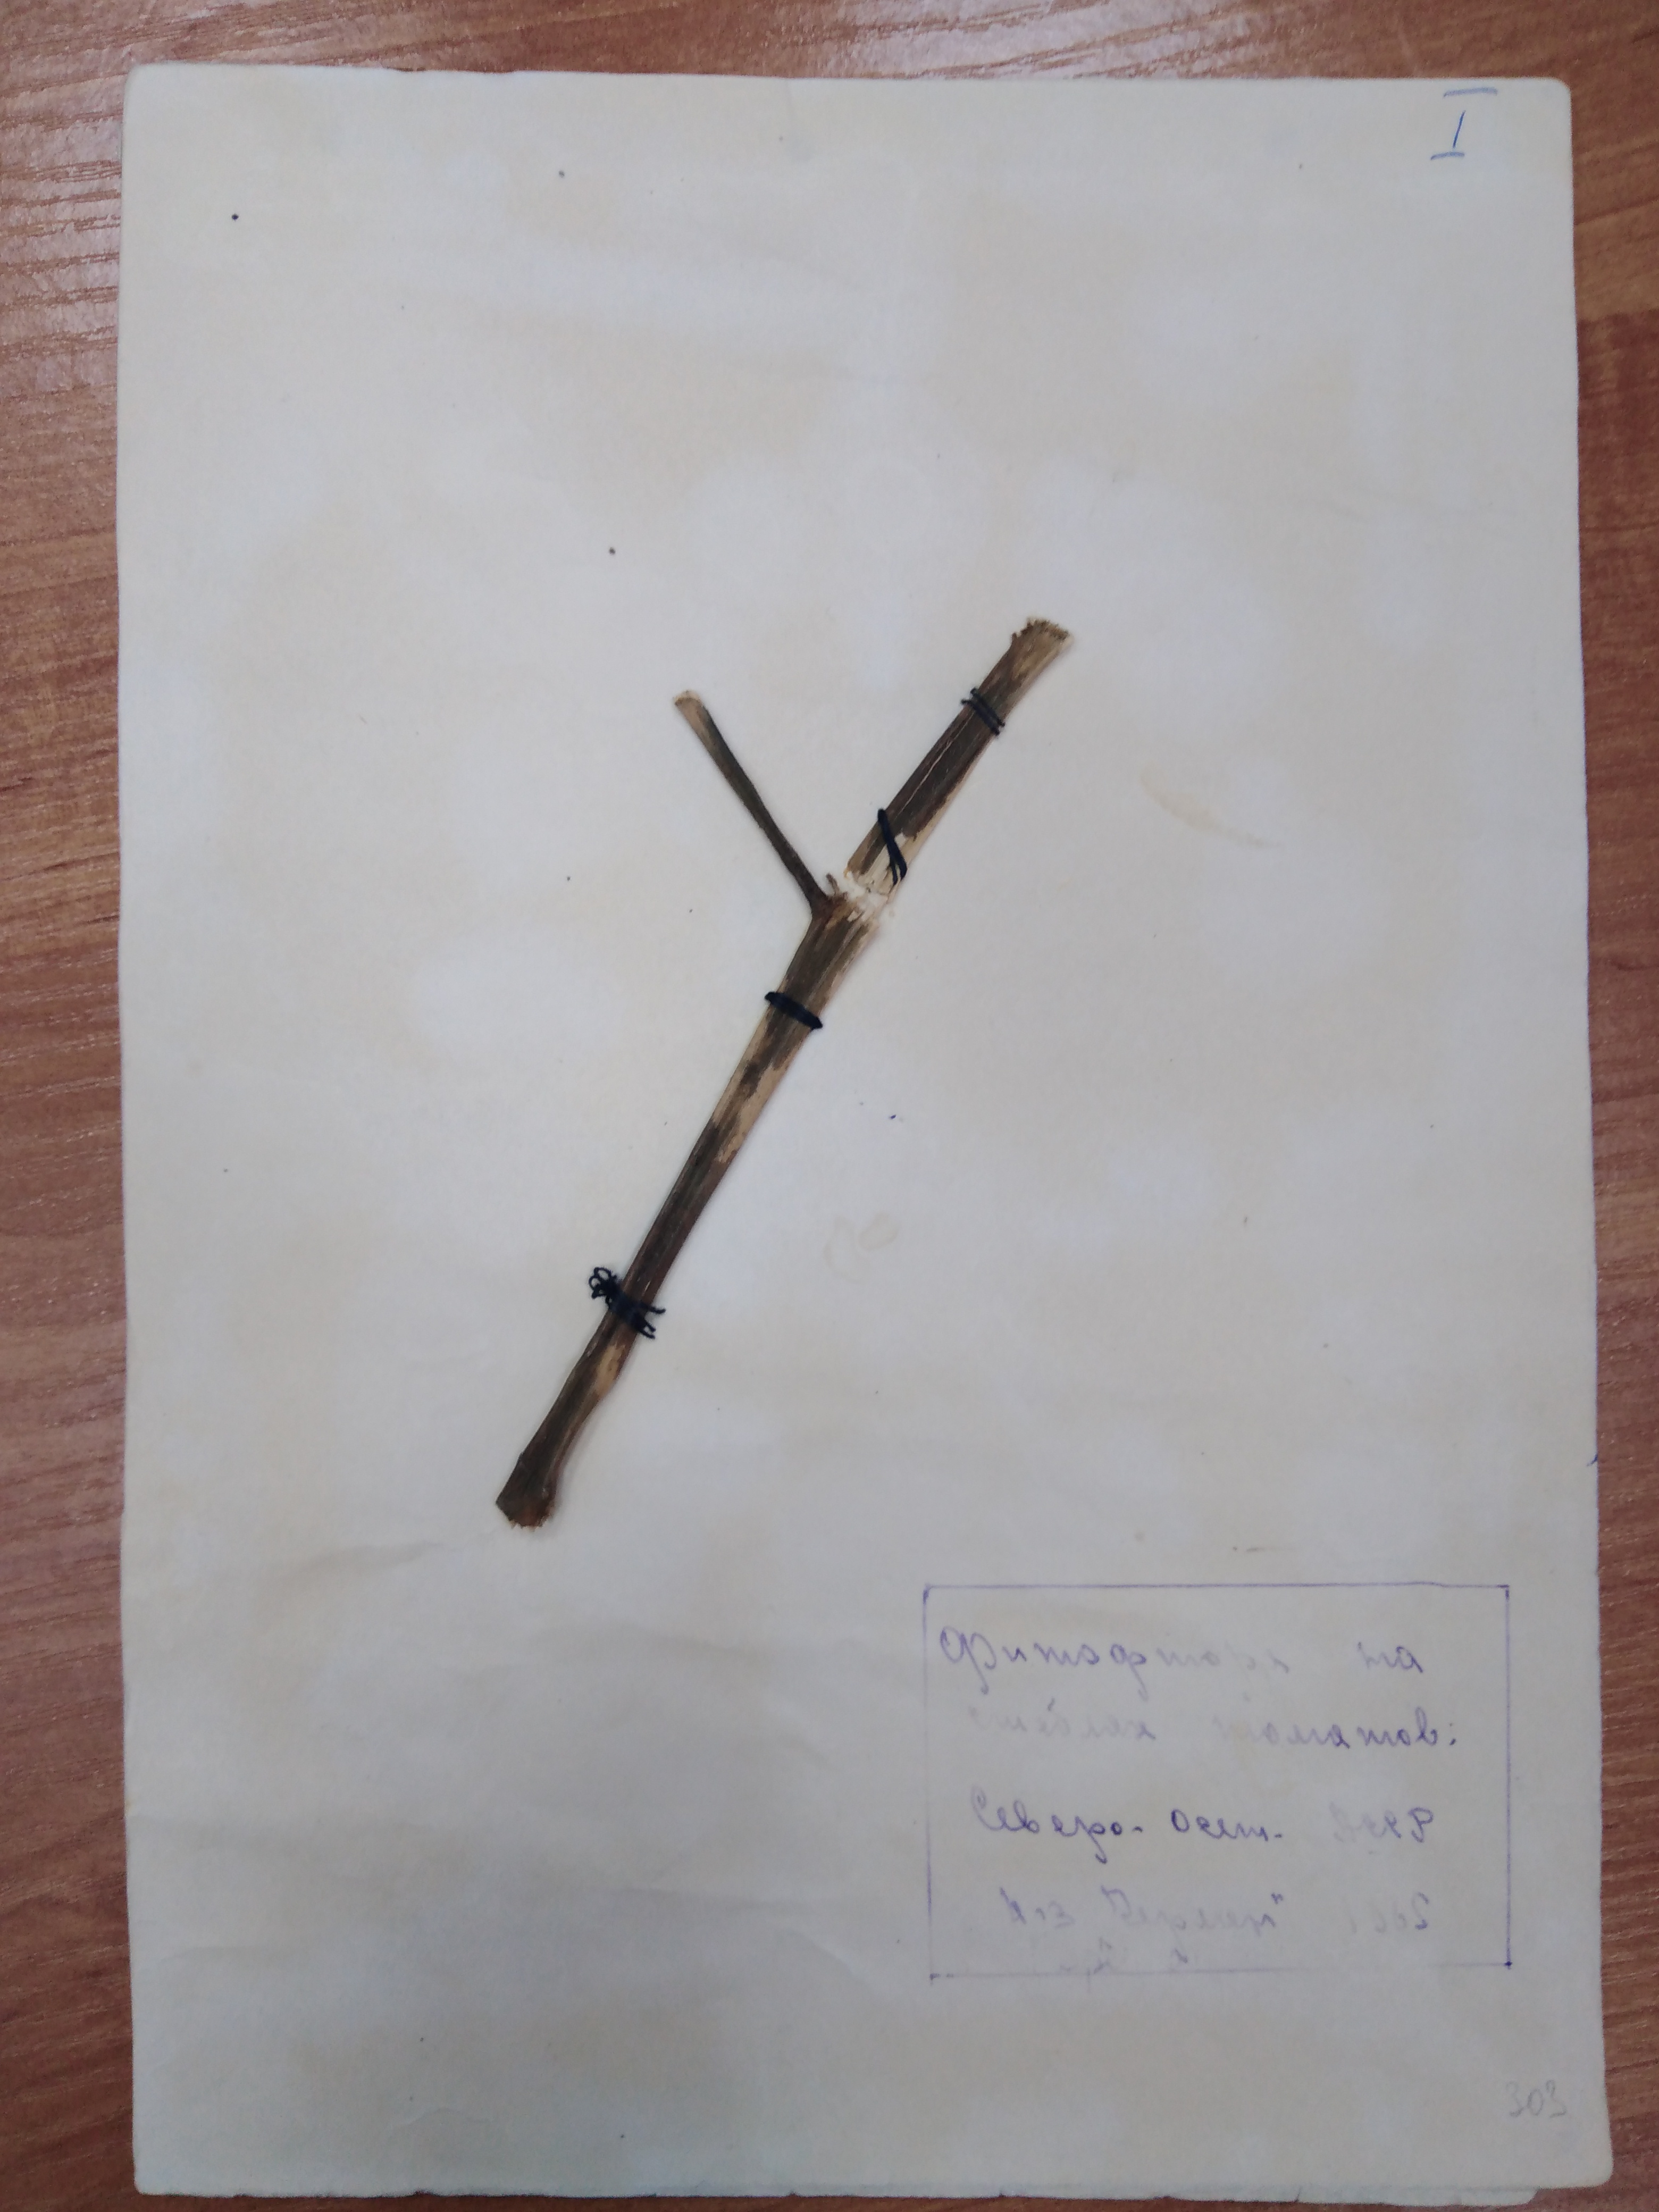 I
Фитофтора на
стеблях томатов:
Северо-Осет. АССР
к-з "Терек" 1965
303